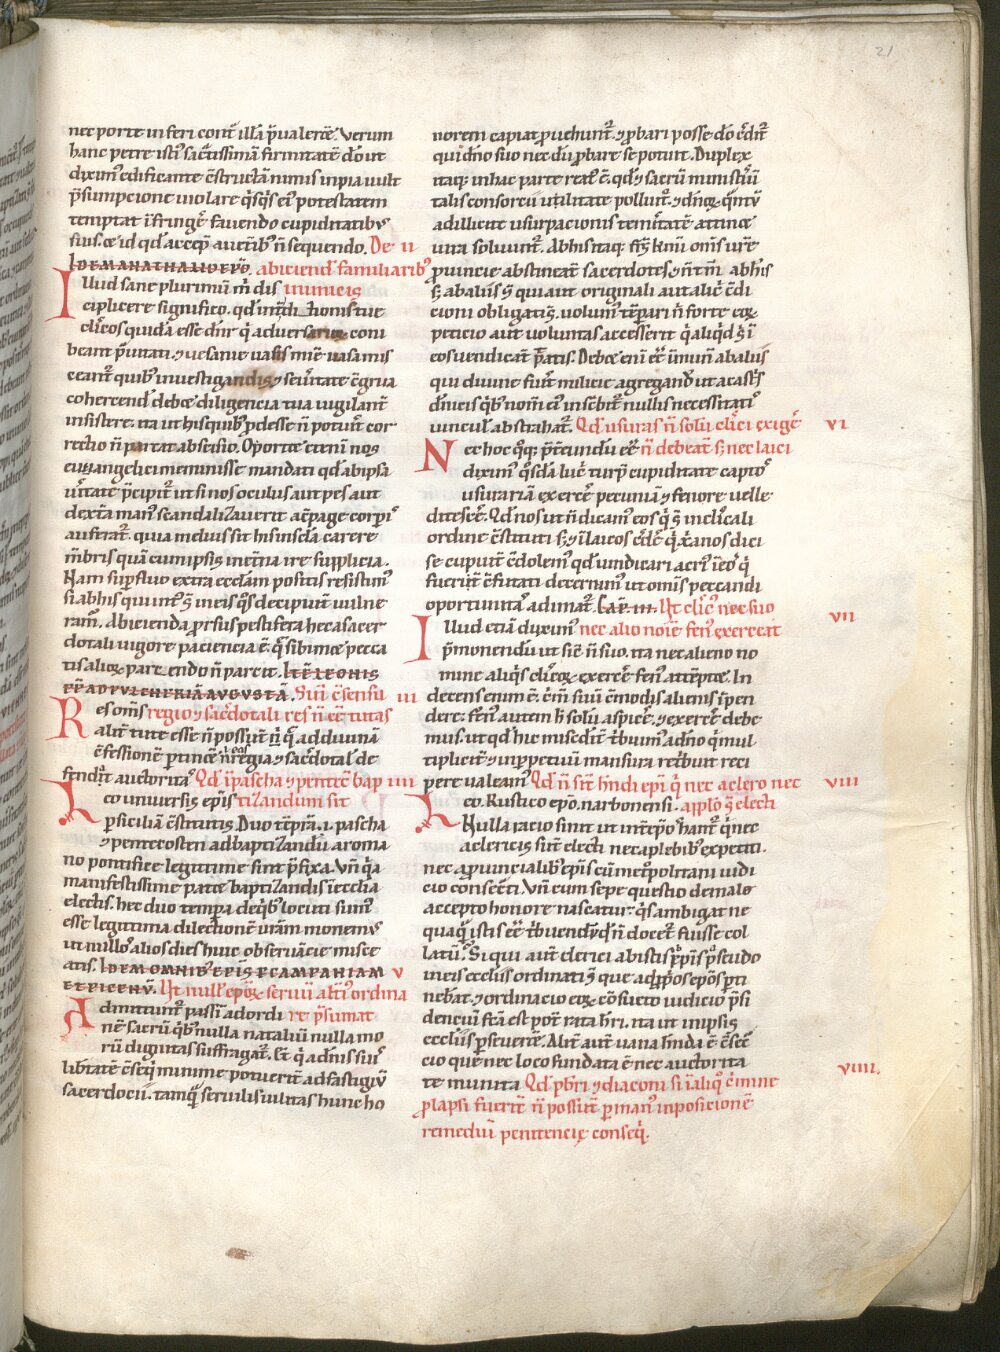 21
nec porte inferi cont̄ illā p̄ualerēt. Verum
hanc petre isti͛ sac̄tissimā firmitatē dō ut
diximͥ edificante c̄structā nimis inpia uult
p̄sumpcione uiolare q̄sq̄s eiͥ potestatem
temptat īfringē fauendo cupiditatibꝰ
suis. ⁊ id qđ accep̄ aucͭibꝰ n̄ sequendo. De ii
IDEM ANATHANO EP̄O. abiciend̄ familiaribꝰ
Illud sane plurimū m̄ dis inimicis
ciplicere significo. qđ
clīcos quidā esse
beant p̄uitati. ⁊ uesanie uasis uesanis
ecant quibꝰ inuestigandis ⁊ seūitate c̄grua
cohercend̄ debet diligencia tua uigilant̄
insistere. ita ut his quibꝰ pdesse n̄ potuit cor
rectio n̄ parcat abscisio. Oportet etenī nos
euuangelici meminisse mandati qđ ab ipsa
ūitate p̄cipit̄ ut si nos oculus aut pes aut
dext̄a manꝰ scandaliZauerit a cōpage corpīs
auferat̄. quia meliͥ sit hiis in sc̄dā carere
m̄bris quā cum ipsis in et̄na ire supplicia.
Nam supfluo extra ecc̄tam positis resistimͥ
si ab his qui intͥ s̄ in eis q̄s decipiunt uulne
ramͥ. Abicienda prorsus pestifera hec a sacer
dotali uigore paciencia ē. q̄ sibimet pecca
tis alioꝝ parcendo n̄ parcit. ITĒ LEONIS
EP̄ AD PULCHERIĀ AVGVSTĀ. Siñ c̄sensu iii
Res om̄s regio ⁊ sacͤdotali res n̄ eē tutas
alit̄ tute esse n̄ possunt n̄ q̄ ad diuinā
c̄fessionē ptinēt regia ⁊ sacͤdotal̓ de
fendīt auctoritaͭ Qđ ī pascha ⁊ pentēc̄ bap iiii
Leo uniuersis ep̄is tiZandum sit
p siciliā c̄stitutis. Duo tēpra .i. pascha
⁊ pentecosten ad baptiZandū a roma
no pontifice legittime sint p̄fixa. Vn̄ q̄a
manifestissime patet baptiZandis ī ecc̄lia
electis. hec duo tempa de q̄bꝰ locuti sumꝰ
esse legitima dilectionē ur̄am monemͥ
ut nullo͛ alios dies huic obseruācie misce
atis. IDEM OMNIBꝰ EP̄IS P CAMPANIAM v
ET PICENV̄. Ut null̓ ep̄oꝝ seruū altiͥ ordina
Admittunt̄ passī ad ordi re p̄sumat
nē sacrū q̄bꝰ nulla nataliū nulla mo
rū dignitas suffragat̄. Et q̄ a dn̄is suiͥ
lib̄tatē c̄seq̄ minime potuer̄t ad fastigiū
sacerdocii. tamq̄ seruilis uilitas hunc ho
norem capiat puehunt̄. ⁊ pbari posse dō c̄dit̄
qui dn̄o suo nec dū pbare se potuit. Duplex
itaqꝫ in hac parte reatͥ ē. qđ ⁊ sacrū ministīū
talis consorcii utilitate polluit̄. ⁊ dn̄oꝝ q̄ntū
ad illicite usurpacionis temītatē attinet
iura soluunt̄. Ab his itaqꝫ frs̄ kmi om̄s ur̄e
puincie abstineāt sacerdotes. ⁊ n̄ tm̄ ab his
s̄ ab aliis q̄ qui aut originali aut alic̄ c̄di
cioni obligati s̄. uolumͥ tēperari n̄ forte eoꝝ
peticio aut uoluntas accesserit q̄ aliqđ s̄ ī
eos uendicāt p̄tatis. Debet eni eē īmunī ab aliis
qui diuine fuit̄ milicie agregandͥ ut a castīs
dn̄icis q̄bꝰ nom̄ eiͥ insc̄bit̄ nullis necessitatiͥ
uinculͥ abstrahat̄. Qđ usuras n̄ solū clīci exigē vi
Nec hoc qͦqꝫ pt̄eundū eē n̄ debeāt s̄; nec laici
diximͥ q̄sdā lucͥ turp̄ cupiditate captoͥ
usurariā exercē pecuniā ⁊ fenore uelle
ditescē. Qđ nos ut n̄ dicamͥ eos q̄ s̄ in clīcali
ordine c̄stituti s̄; ⁊ ī laicos cadē q̄ xͥanos dici
se cupiūt c̄dolemͥ qđ uindicari acriͥ ī eoͥ q̄
fuerīt c̄futati decernimͥ ut omīs peccandi
oportunitaͥ adimat̄. CAP̄. III. Ut clicͥ nec suo
Illud etiā duximͥ nec alio noīe fenͥ exerceāt vii
p̄monendū ut sic̄ n̄ suo. ita nec alieno no
mine aliq̄s clīcoꝝ exercē fenͥ attēptet. In
decens enim ē. cm̄ suū c̄modīs alienis īpen
dere. fenͥ autem h̄ solū aspicē. ⁊ exercē debe
musͥ. ut qđ hic misc̄dit̄ t̄buimͥ a dn̄o q̄ mul
tiplicit̄ ⁊ in ppetuū mansura ret̄buit reci
pere ualeamͥ Qđ n̄ sint hn̄di ep̄i q̄ nec a clero nec viii
Leo. Rustico ep̄o. narbonensi. a ppl̓o s̄ elecͭi
Nulla racio sinit ut int̄ ep̄o͛ h̄ant̄ q̄ nec
a clericis sint electi nec a plebibꝰ expetiti.
nec a puincialibꝰ ep̄is cū met̄politani iudi
cio consecͭi. Vn̄ cum sepe questio de male
accepto honore nascatur. q̄s ambigat ne
quaq̄ istis eē t̄buendū qđ n̄ docet̄ fuisse col
latū. Si qui aut̄ clerici ab istis p̄pis̄ pseudo
in eis ecc̄liis ordinati s̄ que ad ppos ep̄os p̄ti
nebāt. ⁊ ordinacio eoꝝ cōsuetͦ iudicio p̄si
denciū fc̄a est pot̄ rata h̄ri. ita ut in ipsis
ecc̄liis pseuerēt. Alit̄ aut̄ uana hn̄da ē c̄sec̄
cio que nec loco fundata ē nec auctorita
te munita Qđ pbr̄i ⁊ diaconi si ī aliqͦ c̄mine viiii.
plapsi fuerīt n̄ possūt p manͥ inposicionē
remediū penitencie conseq̄.